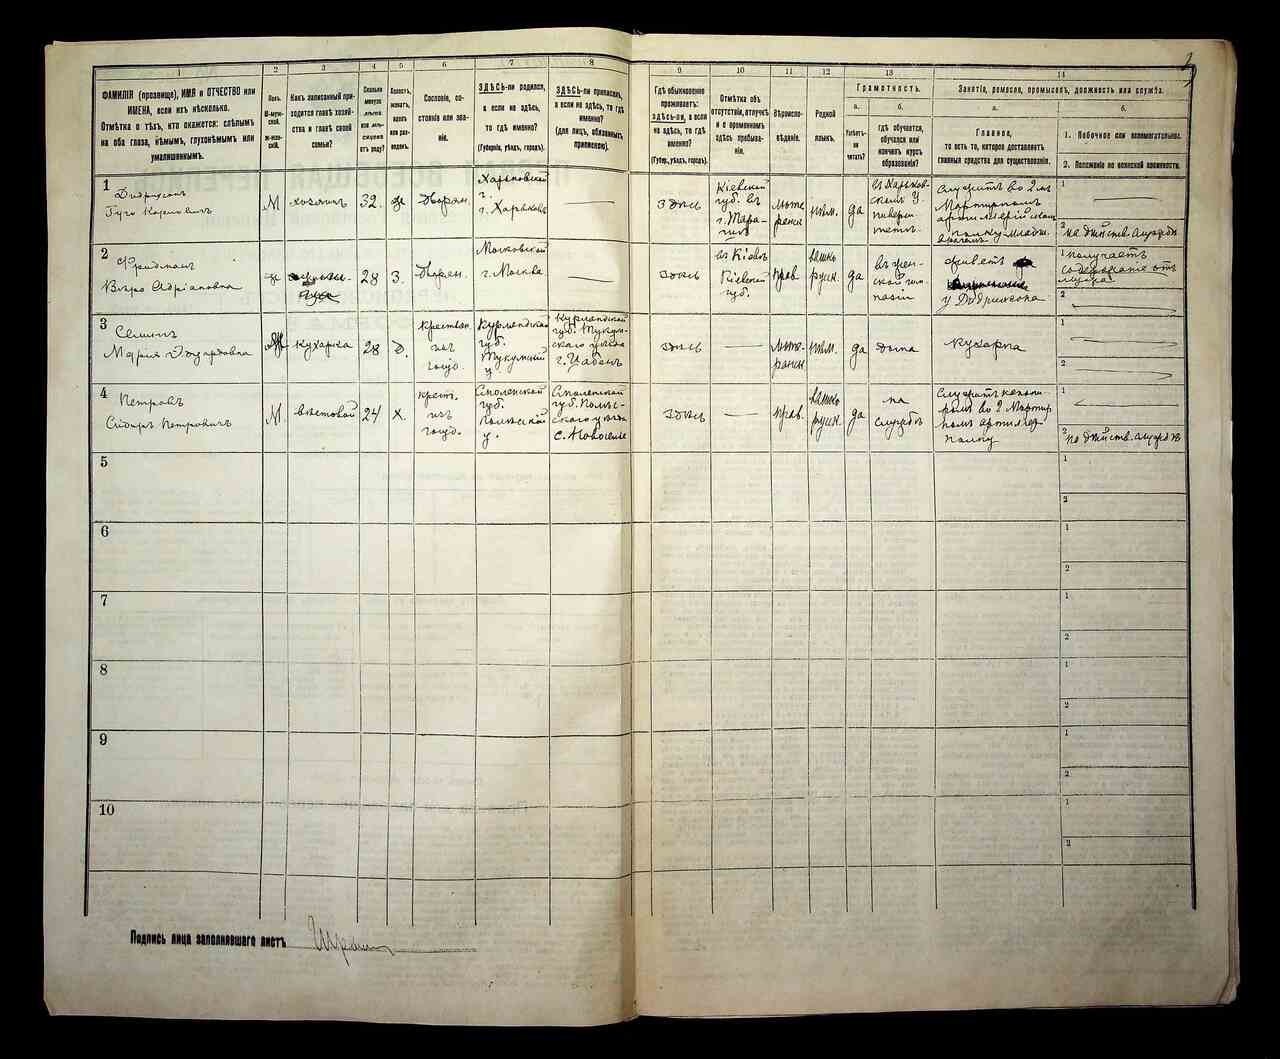 1
2
3
4
5
6
7
8
9
10
11
12
13
14
ФАМИЛІЯ (прозвище), ИМЯ и ОТЧЕСТВО или
ИМЕНА, если ихъ нѣсколько.
Отмѣтка о тѣхъ, кто окажется: слѣпымъ
на оба глаза, нѣмымъ, глухонѣмымъ или
умалишеннымъ.
Полъ.
М-муж-
ской.
Ж-жен-
скій.
Какъ записанный при-
ходится главѣ хозяй-
ства и главѣ своей
семьи?
Сколько
минуло
лѣтъ
или мѣ-
сяцевъ
отъ роду?
Холостъ,
женатъ,
вдовъ
или раз-
веденъ.
Сословіе, со-
стояніе или зва-
ніе.
ЗДѢСЬ-ли родился,
а если не здѣсь,
то гдѣ именно?
(Губернія, уѣздъ, городъ).
ЗДѢСЬ-ли приписанъ,
а если не здѣсь, то гдѣ
именно?
(для лицъ, обязанныхъ
припискою).
Гдѣ обыкновенно
проживаетъ:
здѣсь-ли, а если
не здѣсь, то гдѣ
именно?
(Губер., уѣздъ, городъ).
Отмѣтка объ
отсутствіи, отлучкѣ
и о временномъ
здѣсь пребыва-
ніи.
Вѣроиспо-
вѣданіе.
Родной
языкъ.
Грамотность.
а.
б.
Умѣетъ-
ли
читать?
гдѣ обучается,
обучался или
кончилъ курсъ
образованія?
Занятія, ремесло, промыселъ, должность или служба.
а.
б.
Главное,
то есть то, которое доставляетъ
главныя средства для существованія.
1. Побочное или вспомогательное.
2. Положеніе по воинской повинности.
1
Гуго Карловичъ
М
хозяинъ
32.
Дворян.
Харьковской
г.
г. Харьковъ
здѣсь
Кіевской
губ. въ
г. Тара-
лют-
нѣм.
да
въ Харьков-
скомъ У-
ниверси-
тетѣ.
Служитъ во 2-мъ
Мартирномъ
артиллерійскомъ
полку младш.
врачемъ
1
2 на дѣйств. службѣ
2
Фридманъ
Вѣра Адріановна
ж
28
З.
Дворян.
Московской
г. Москва
здѣсь
въ Кіевѣ
Кіевской
губ.
прав.
русск.
да
въ жен-
ской гим-
назіи
живетъ
у Дидриксона
1 получаетъ
содержаніе отъ
мужа
2
3
Селинъ
Марія Эдуардовна
Ж
кухарка
28
Д.
крестьян.
изъ
госуд.
Курляндской
губ.
Тукумскій
у
Курляндской
губ. Тукум-
скаго уѣзда
здѣсь
люте-
ранск
нѣм.
да
дома
кухарка
1
2
4
Петровъ
Сидоръ Петровичъ
М
вѣстовой
24
Х.
крест.
изъ
госуд.
Смоленской
губ.
у.
Смоленской
губ.
скаго уѣзда
с. Новоселье
здѣсь
прав.
русск.
да
на
службѣ
Служитъ канони-
ромъ во 2 Мортир
номъ артиллер
полку
1
2 на дѣйств. службѣ
5
1
2
6
1
2
7
1
2
8
1
2
9
1
2
10
1
2
Подпись лица заполнявшаго листъ